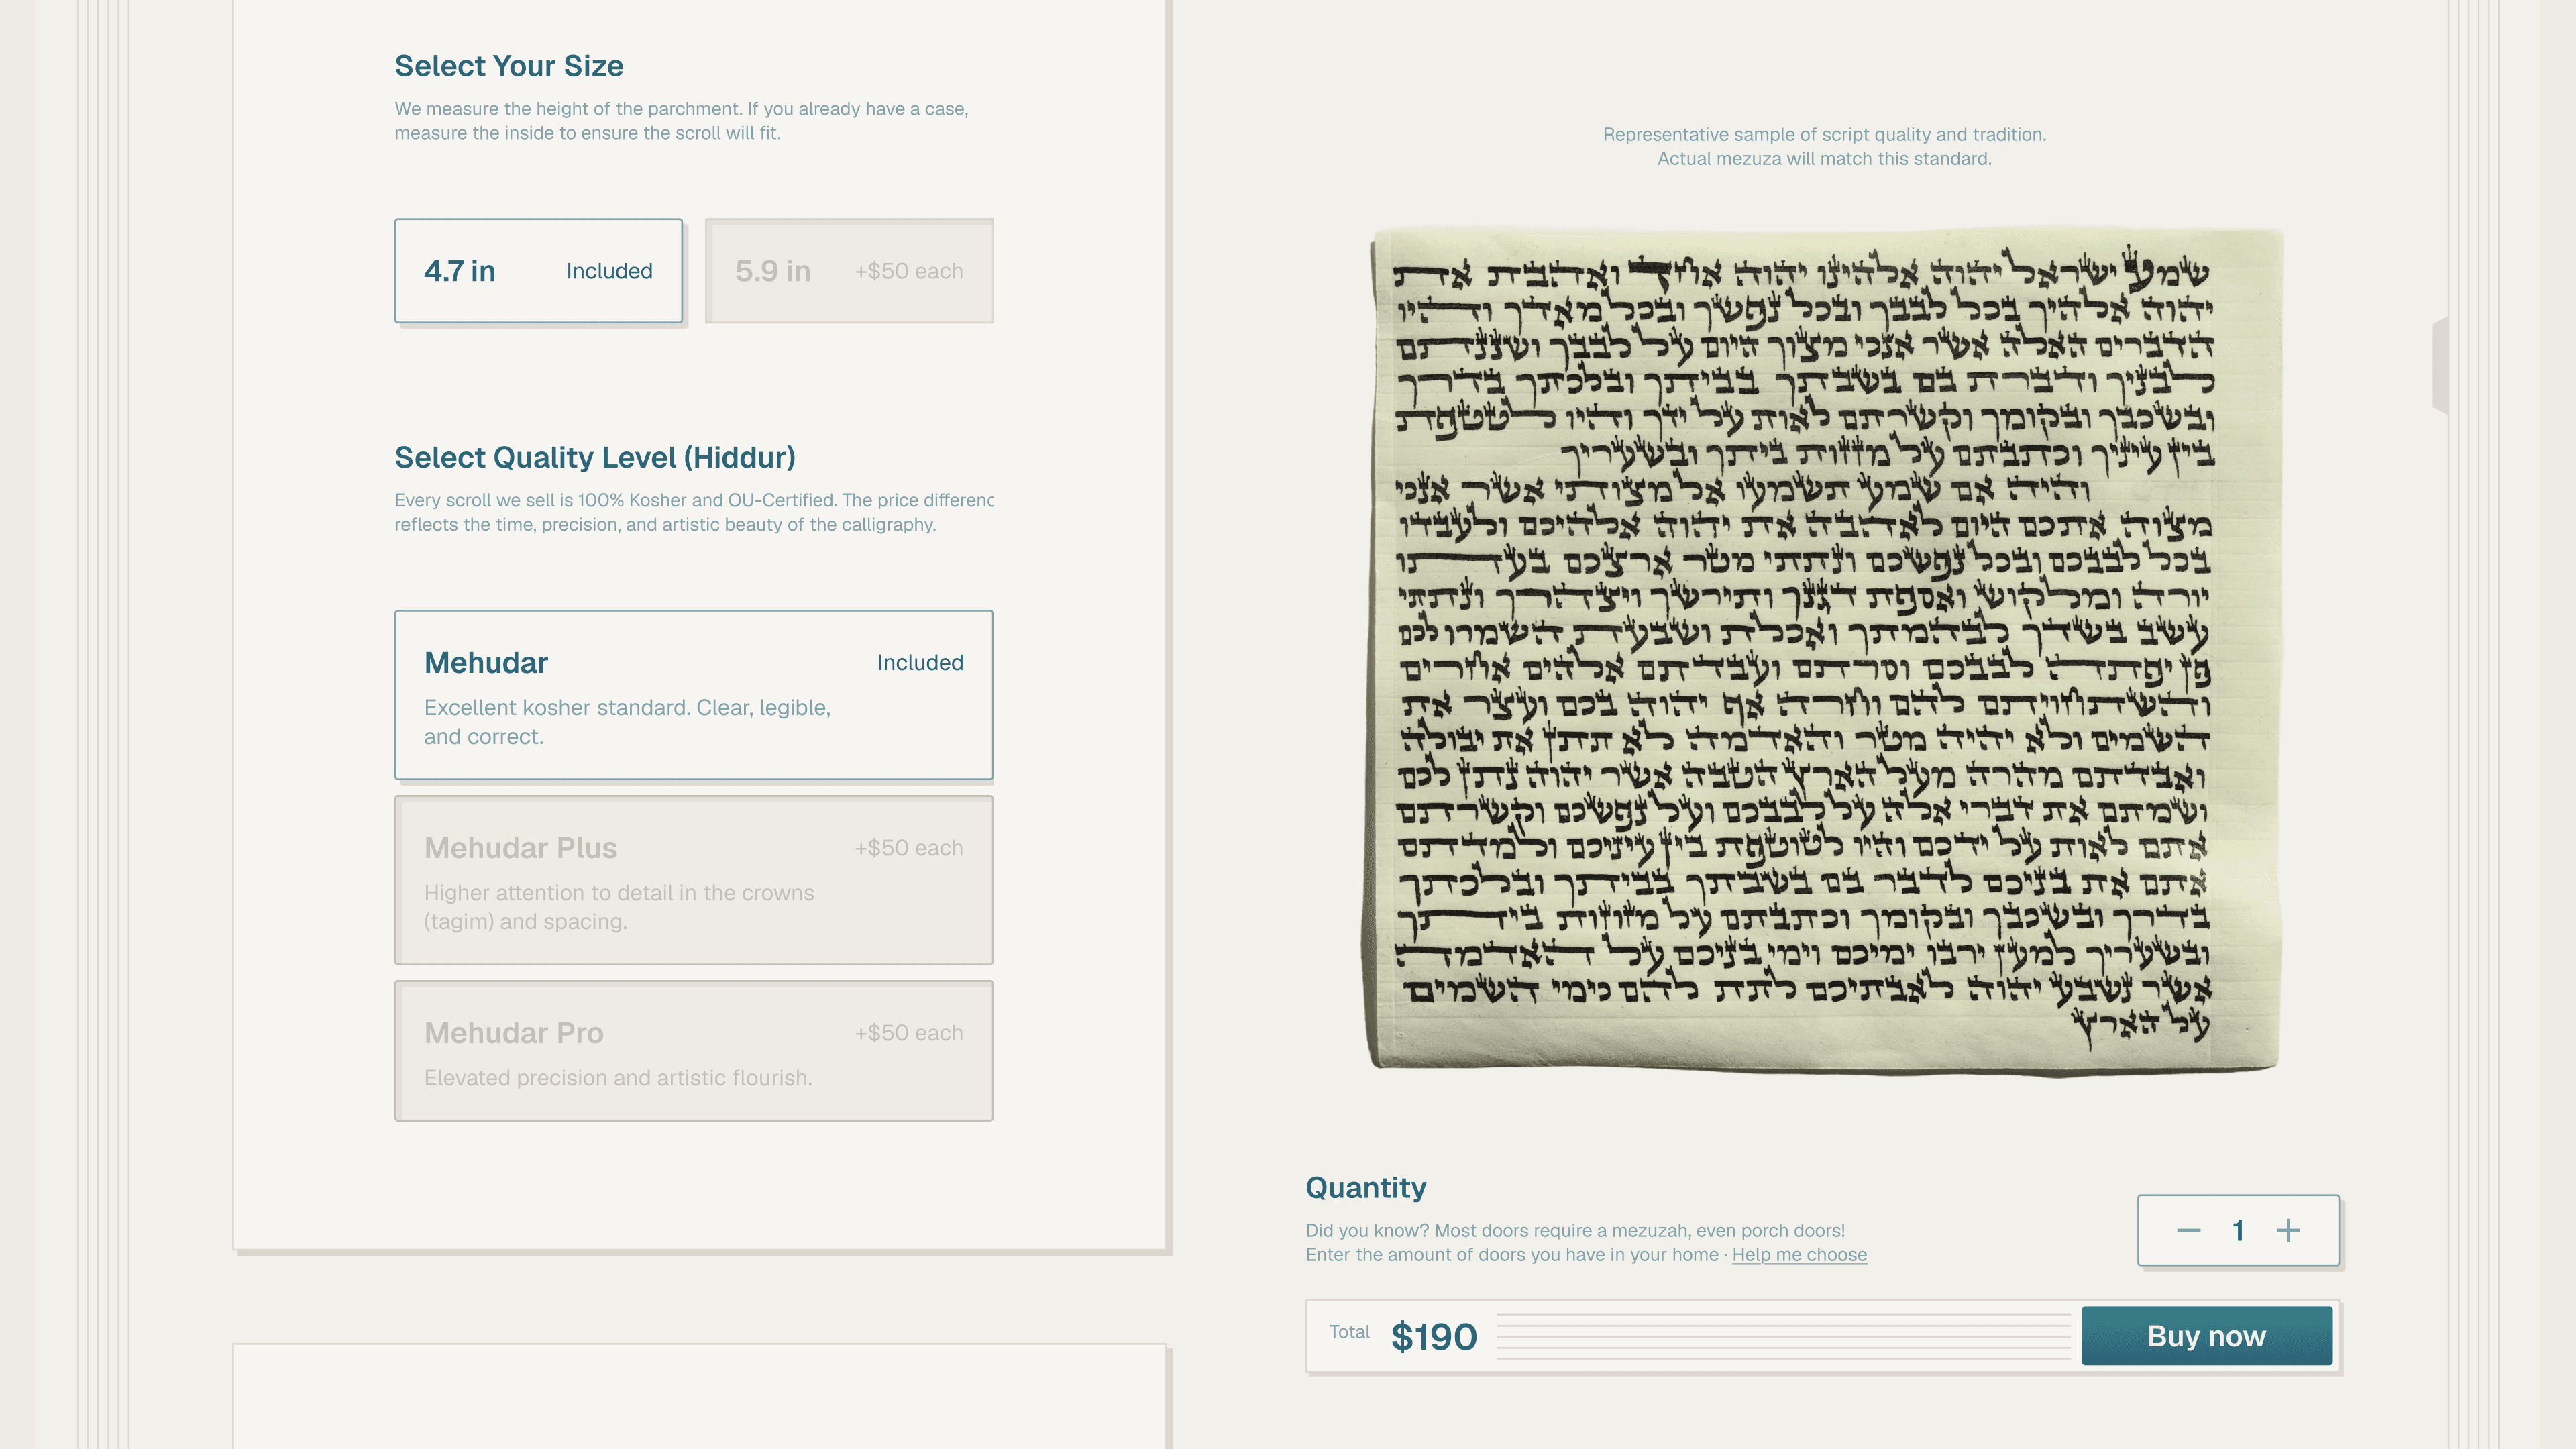 Select Your Size
We measure the height of the parchment. If you already have a case,
measure the inside to ensure the scroll will fit.
4.7 in
Included
5.9 in
+$50 each
Select Quality Level (Hiddur)
Every scroll we sell is 100% Kosher and OU-Certified. The price differenc
reflects the time, precision, and artistic beauty of the calligraphy.
Mehudar
Included
Excellent kosher standard. Clear, legible,
and correct.
Mehudar Plus
+$50 each
Higher attention to detail in the crowns
(tagim) and spacing.
Mehudar Pro
+$50 each
Elevated precision and artistic flourish.
Representative sample of script quality and tradition.
Actual mezuza will match this standard.
שמע ישראל יהוה אלהינו יהוה אחד ואהבת את
יהוה אלהיך בכל לבבך ובכל נפשך ובכל מאדך והיו
הדברים האלה אשר אנכי מצוך היום על לבבך ושננתם
לבניך ודברת בם בשבתך בביתך ובלכתך בדרך
ובשכבך ובקומך וקשרתם לאות על ידך והיו לטטפת
בין עיניך וכתבתם על מזזות ביתך ובשעריך
והיה אם שמע תשמעו אל מצותי אשר אנכי
מצוה אתכם היום לאהבה את יהוה אלהיכם ולעבדו
בכל לבבכם ובכל נפשכם ונתתי מטר ארצכם בעתו
יורה ומלקוש ואספת דגנך ותירשך ויצהרך ונתתי
עשב בשדך לבהמתך ואכלת ושבעת השמרו לכם
פן יפתה לבבכם וסרתם ועבדתם אלהים אחרים
והשתחויתם להם וחרה אף יהוה בכם ועצר את
השמים ולא יהיה מטר והאדמה לא תתן את יבולה
ואבדתם מהרה מעל הארץ הטבה אשר יהוה נתן לכם
ושמתם את דברי אלה על לבבכם ועל נפשכם וקשרתם
אתם לאות על ידכם והיו לטוטפת בין עיניכם ולמדתם
אתם את בניכם לדבר בם בשבתך בביתך ובלכתך
בדרך ובשכבך ובקומך וכתבתם על מזוזות ביתך
ובשעריך למען ירבו ימיכם וימי בניכם על האדמה
אשר נשבע יהוה לאבתיכם לתת להם כימי השמים
על הארץ
Quantity
Did you know? Most doors require a mezuzah, even porch doors!
Enter the amount of doors you have in your home · Help me choose
− 1 +
Total $190
Buy now